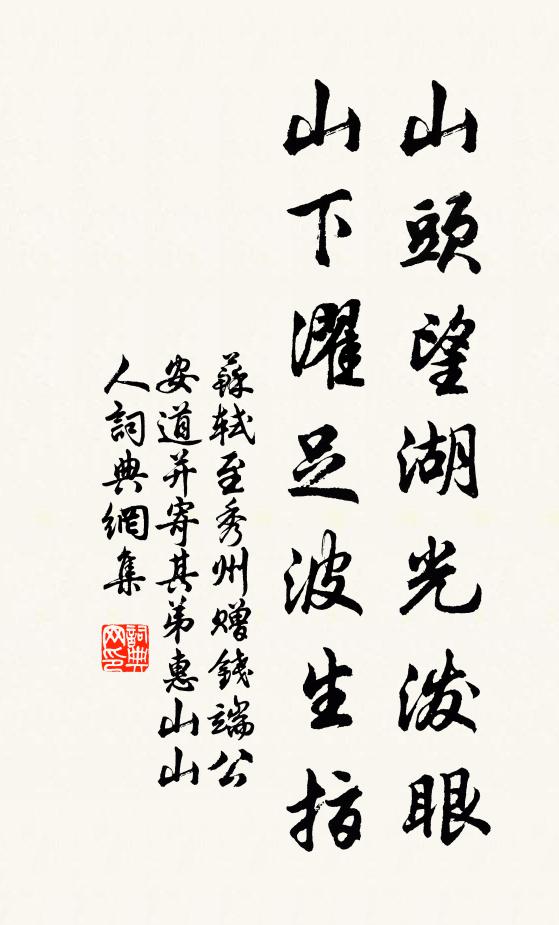 山頭望湖光潑眼
山下濯足波生指
蘇軾至秀州贈錢端公
安道并寄其弟惠山山
人詞典網集
詞典
网印